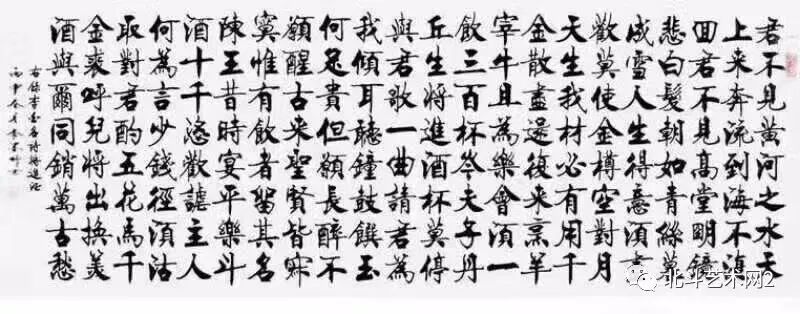 君不見黃河之水天
上來奔流到海不復
回君不見高堂明鏡
悲白髮朝如青絲暮
成雪人生得意須盡
歡莫使金樽空對月
天生我材必有用千
金散盡還復来烹羊
宰牛且為樂會須一
飲三百杯岑夫子丹
丘生將進酒杯莫停
與君歌一曲請君為
我傾耳聽鐘鼓饌玉
何足貴但願長醉不
願醒古來聖賢皆寂
寞惟有飲者留其名
陳王昔時宴平樂斗
酒十千恣歡謔主人
何為言少錢徑須沽
取對君酌五花馬千
金裘呼兒將出換美
酒與爾同銷萬古愁
右錄李白名詩將進酒
丙申
北斗艺术网2